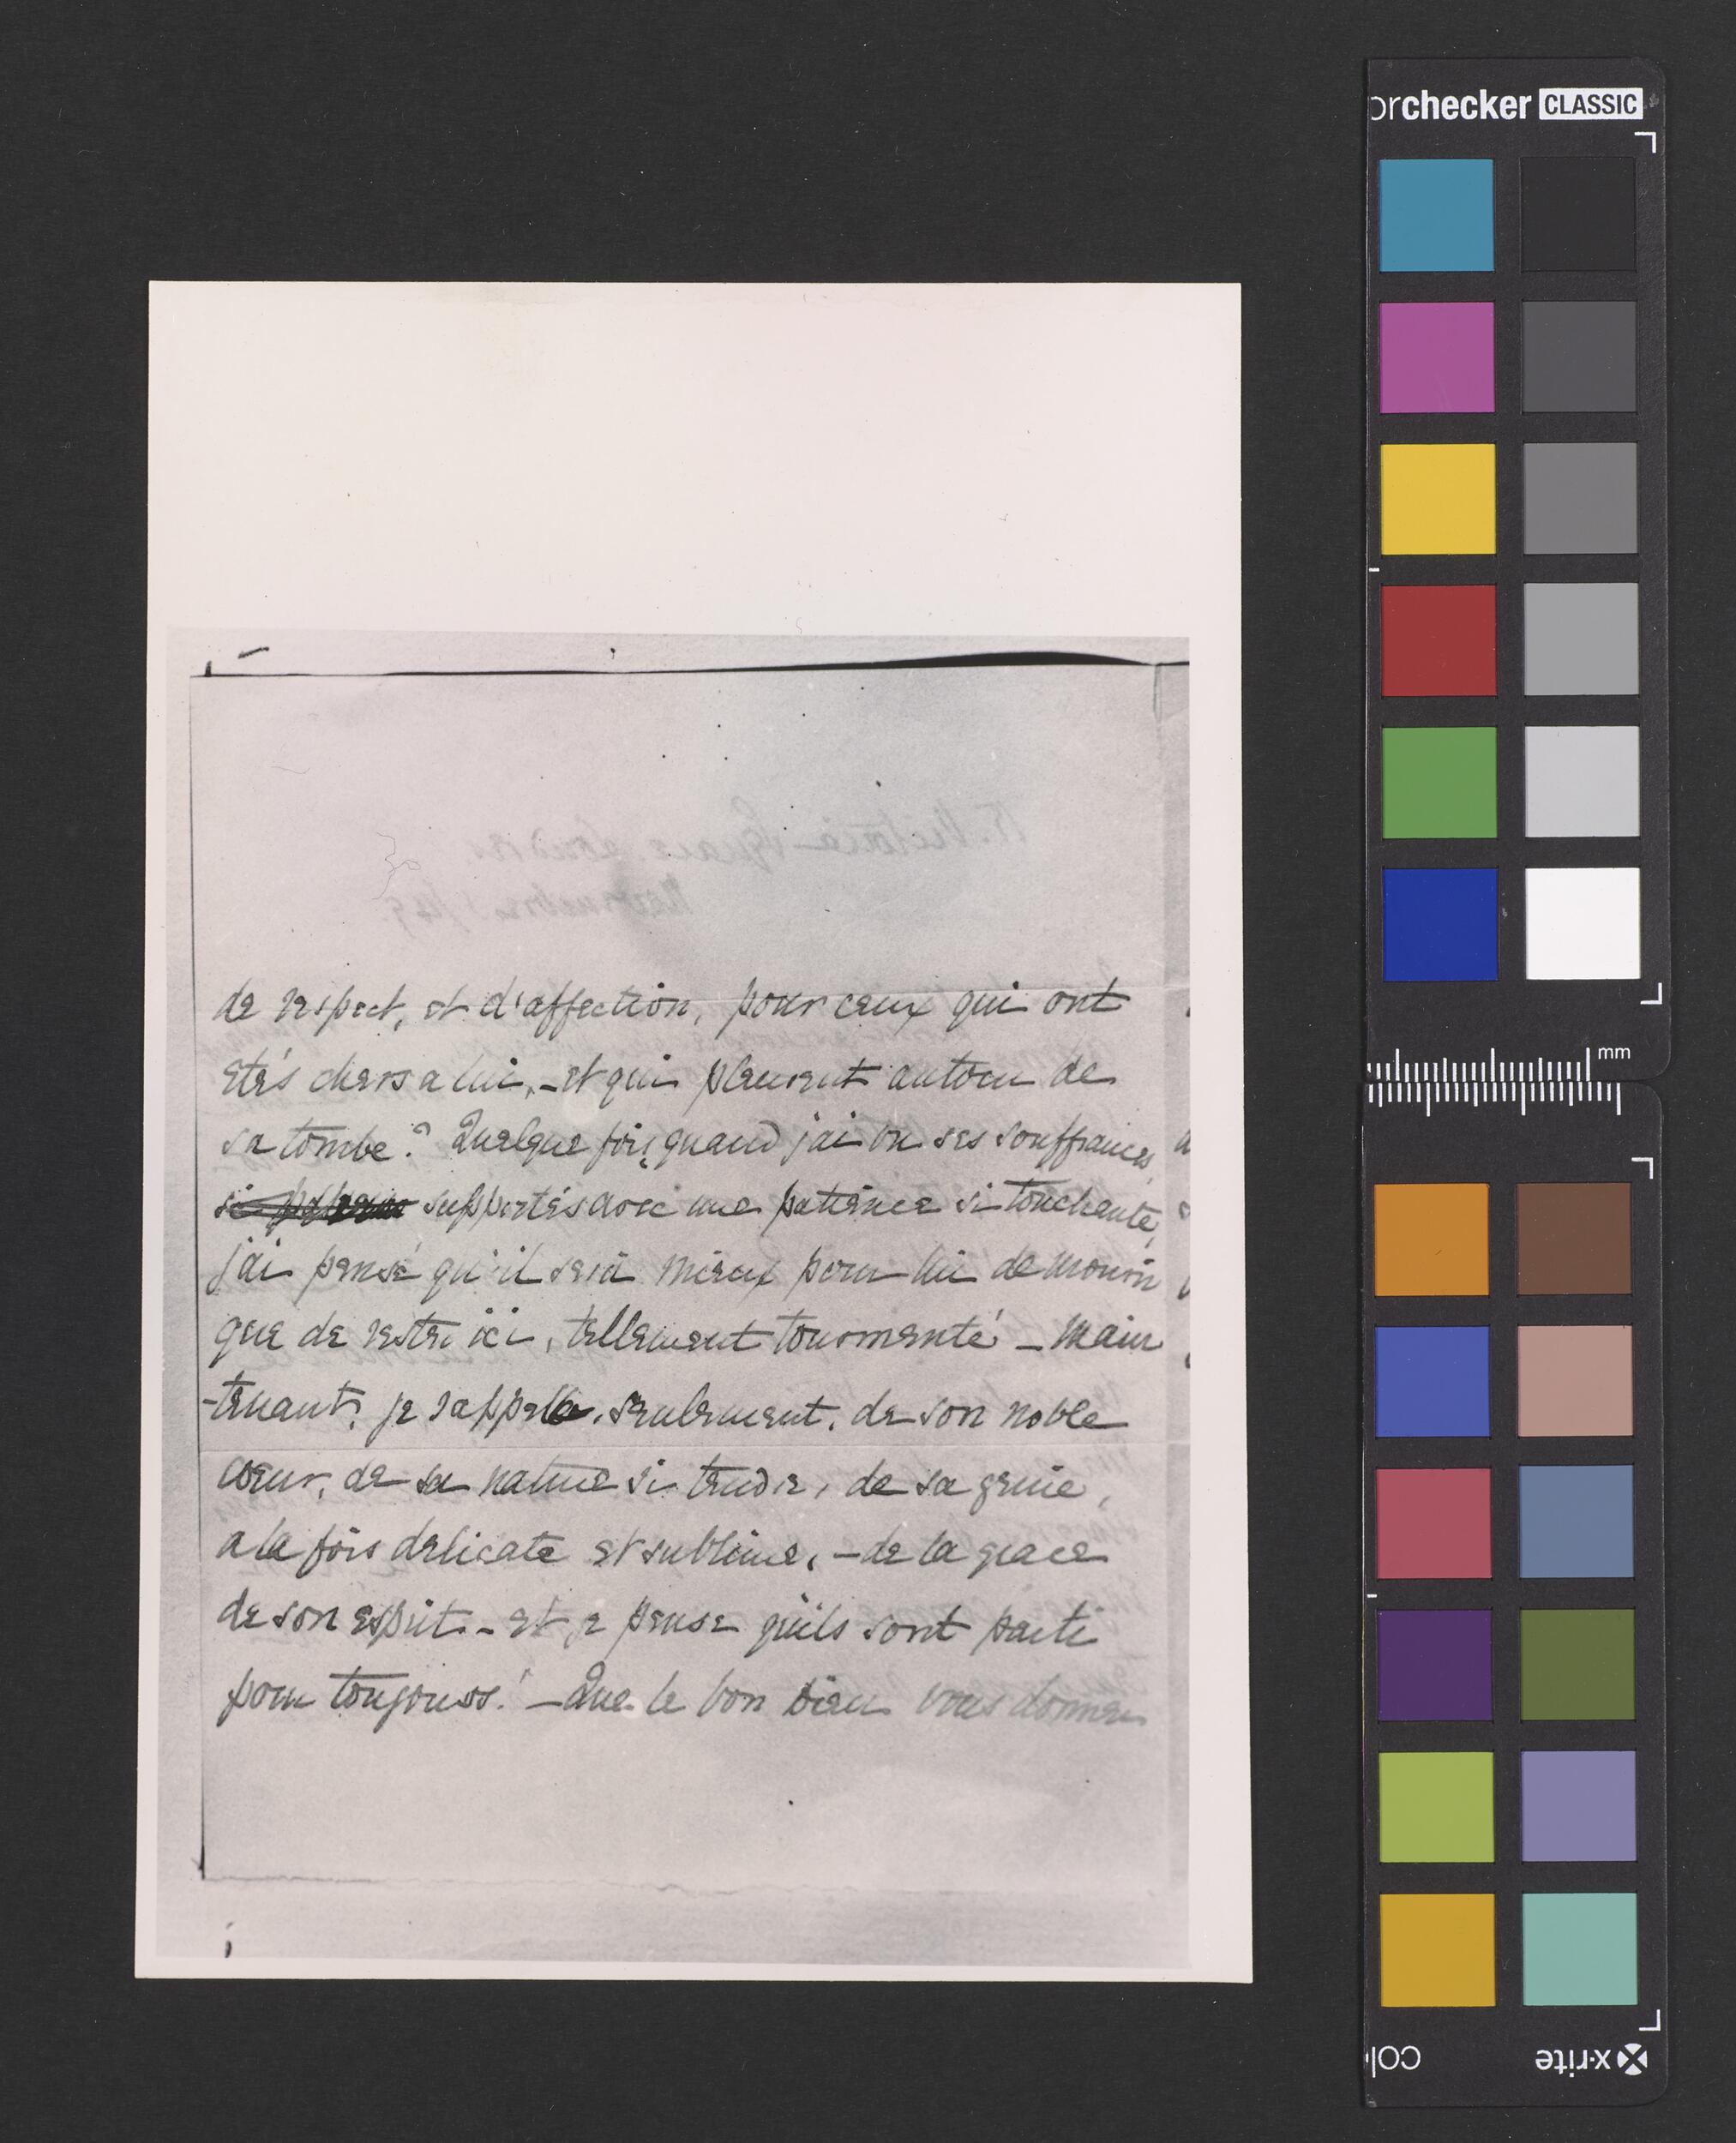 orchecker CLASSIC
mm
de respect, et d'affection, pour ceux qui ont
etés chers a lui, - et qui pleurent autour de
sa tombe? Quelque fois, quand j'ai vu ses souffrances
si supportés avec une patience si touchante,
j'ai pensé qu'il serà mieux pour lui de mourir
que de rester ici, tellement tourmenté - Main
-tenant, je rappelle, seulement, de son noble
cœur, de sa nature si tendre, de sa genie,
a la fois delicate et sublime, - de la grace
de son esprit. - et je pense qu'ils sont parti
pour toujours! - Que le bon Dieu vous donner
x-rite
col